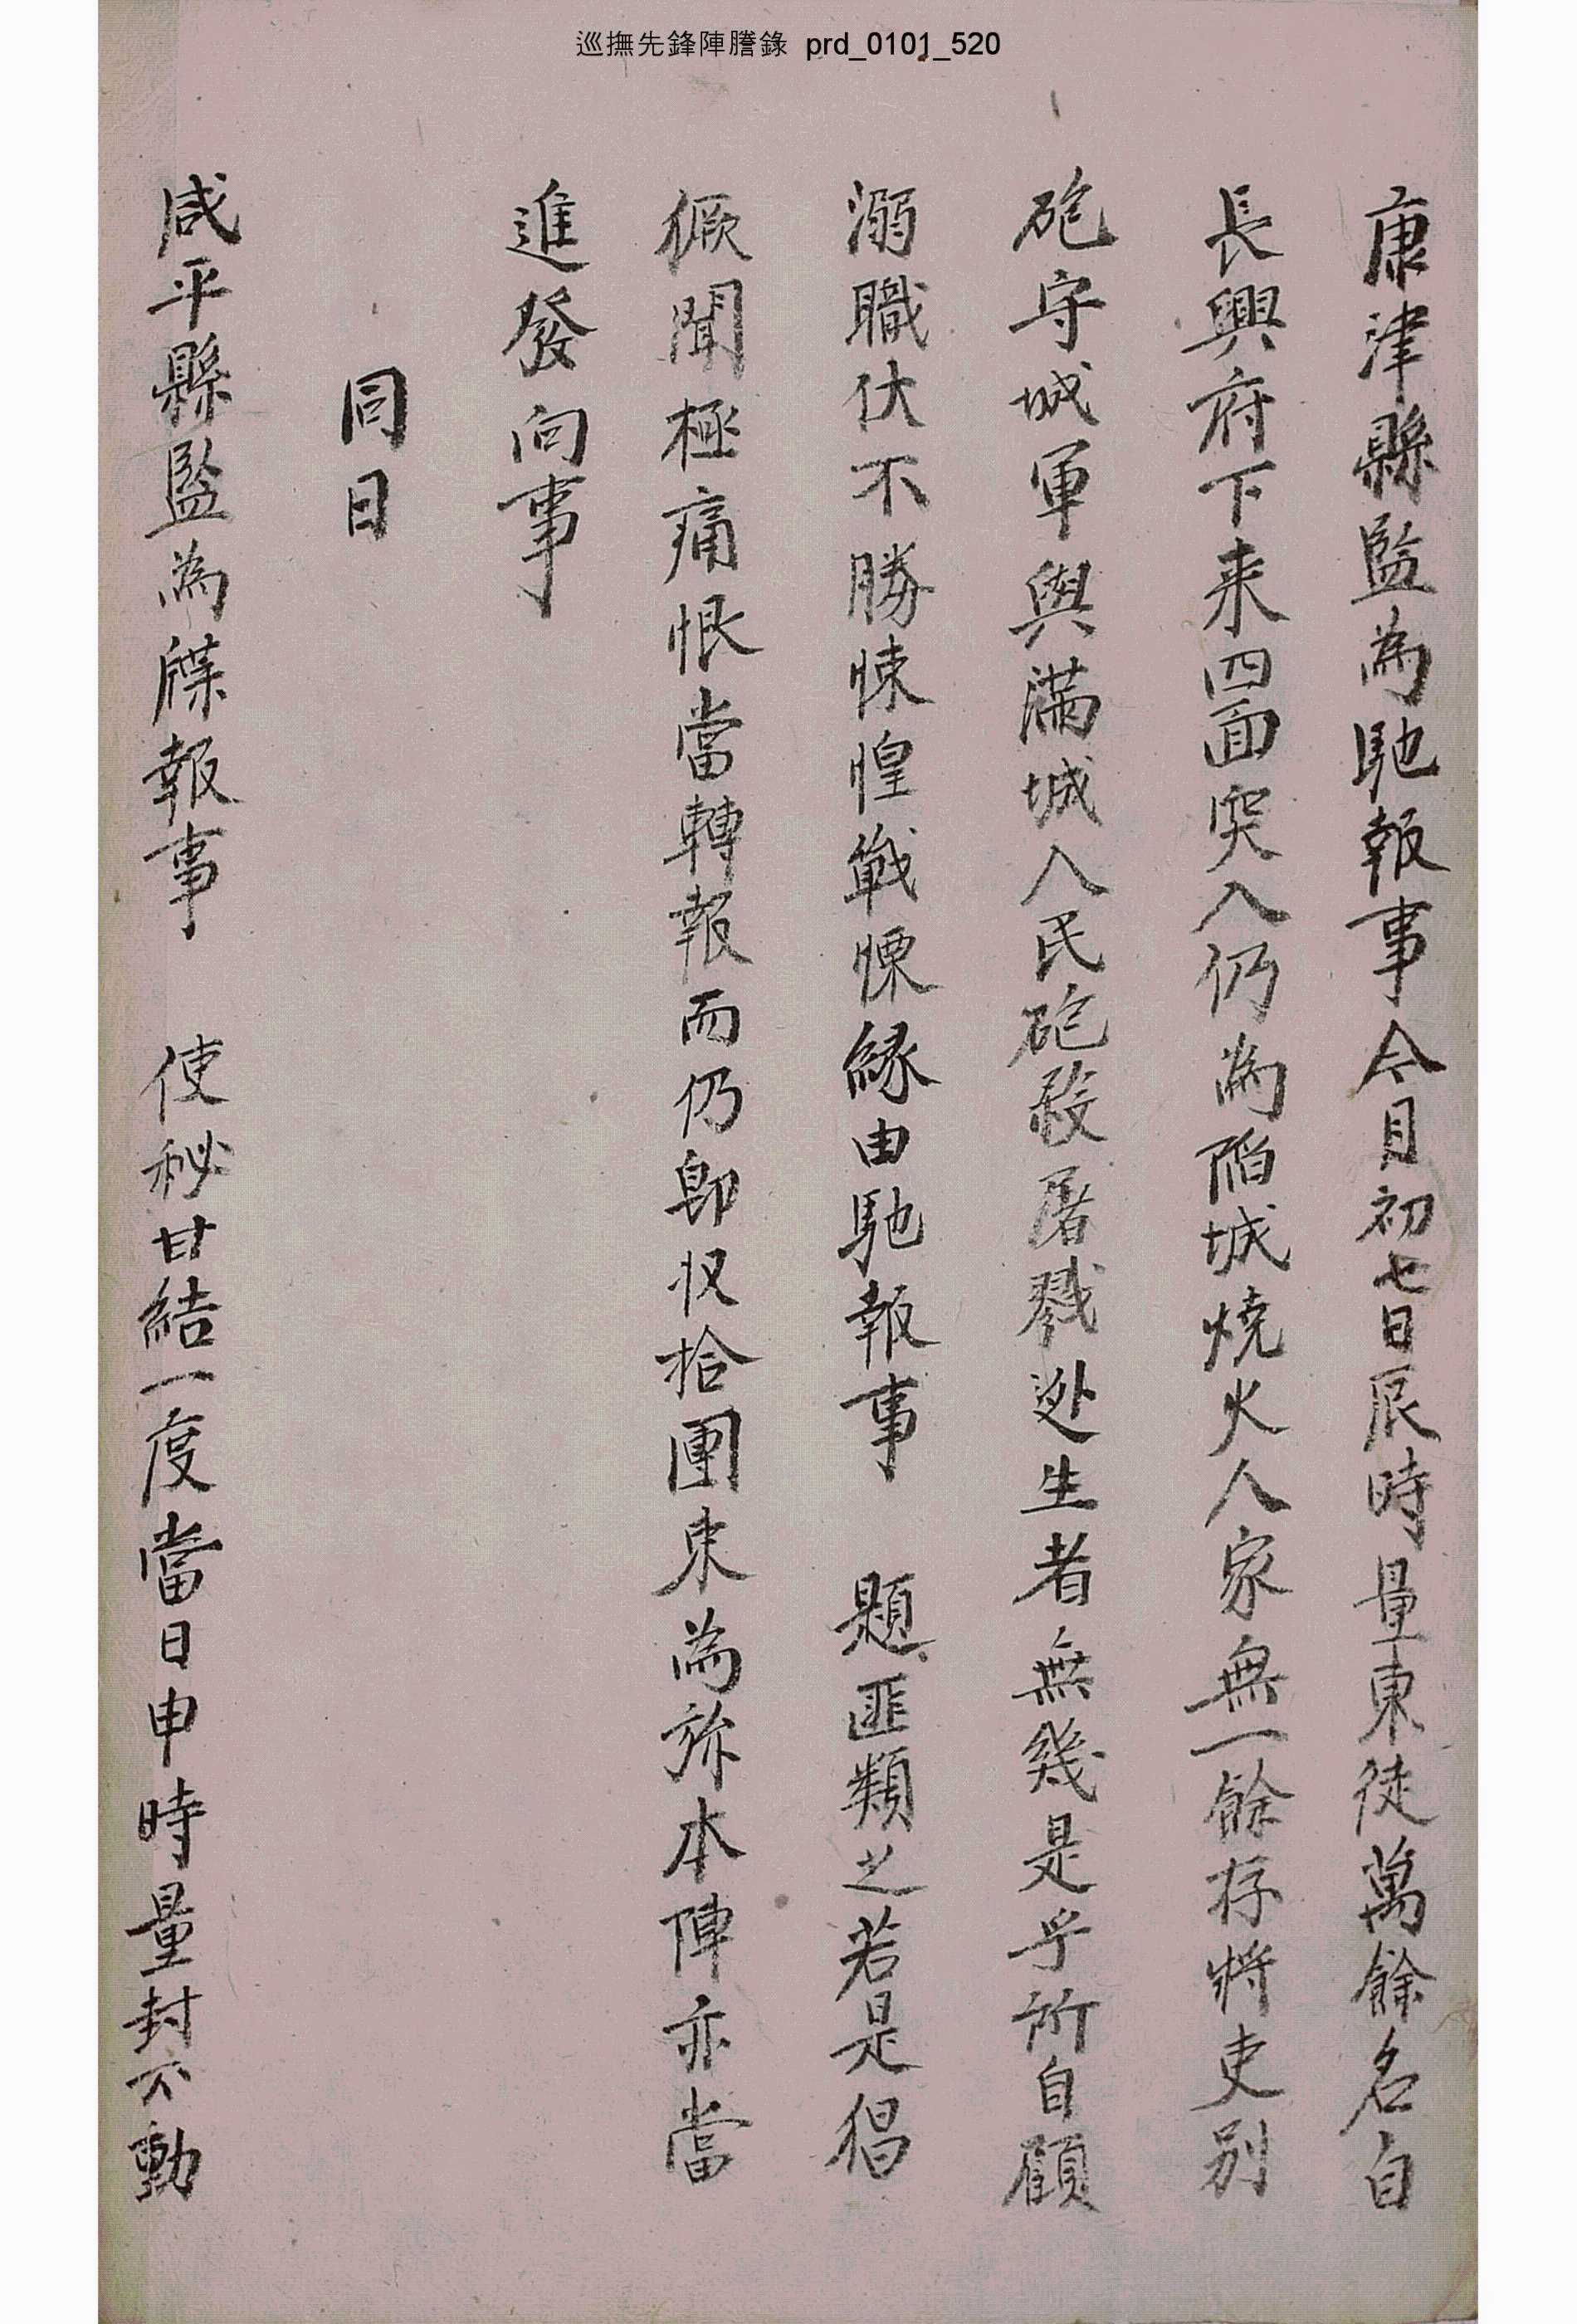 巡撫先鋒陣謄錄 prd_0101_520
康津縣監為馳報事今月初七日辰時量東徒萬餘名自
長興府下来四面突入仍為陷城燒火人家無一餘存将吏別
砲守城軍與滿城人民砲殺屠戮迯生者無幾是乎所自顧
溺職伏不勝悚惶戰慄緣由馳報事 題匪類之若是猖
獗聞極痛恨當轉報而仍卽收拾團束為旀本陣亦當
進發向事
同日
咸平縣監為牒報事 使秘甘結一度當日申時量封不動